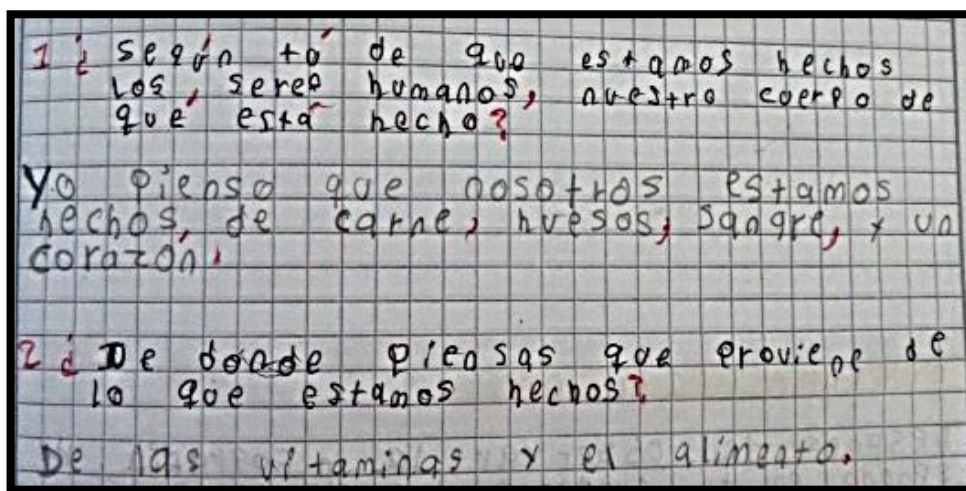 1 ¿ según tú de que estamos hechos
los, seres humanos, nuestro cuerpo de
qué está hecho?
Yo pienso que nosotros estamos
hechos, de carne, huesos, sangre, y un
corazón.
2 ¿ De donde piensas que proviene de
lo que estamos hechos?
De las vitaminas y el alimento.